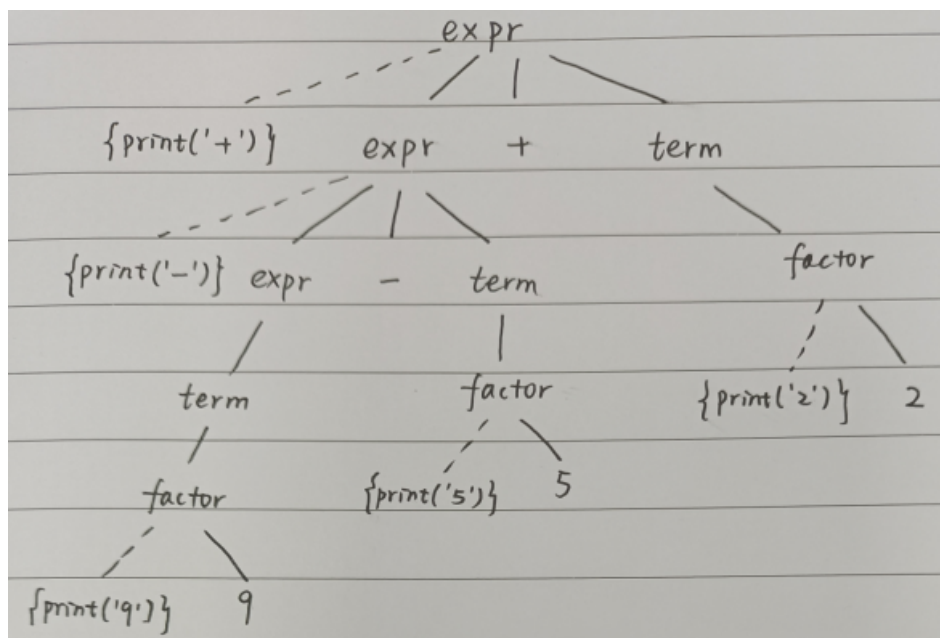 expr
{print('+')} expr + term
{print('-')} expr - term factor
term factor {print('2')} 2
factor {print('5')} 5
{print('9')} 9